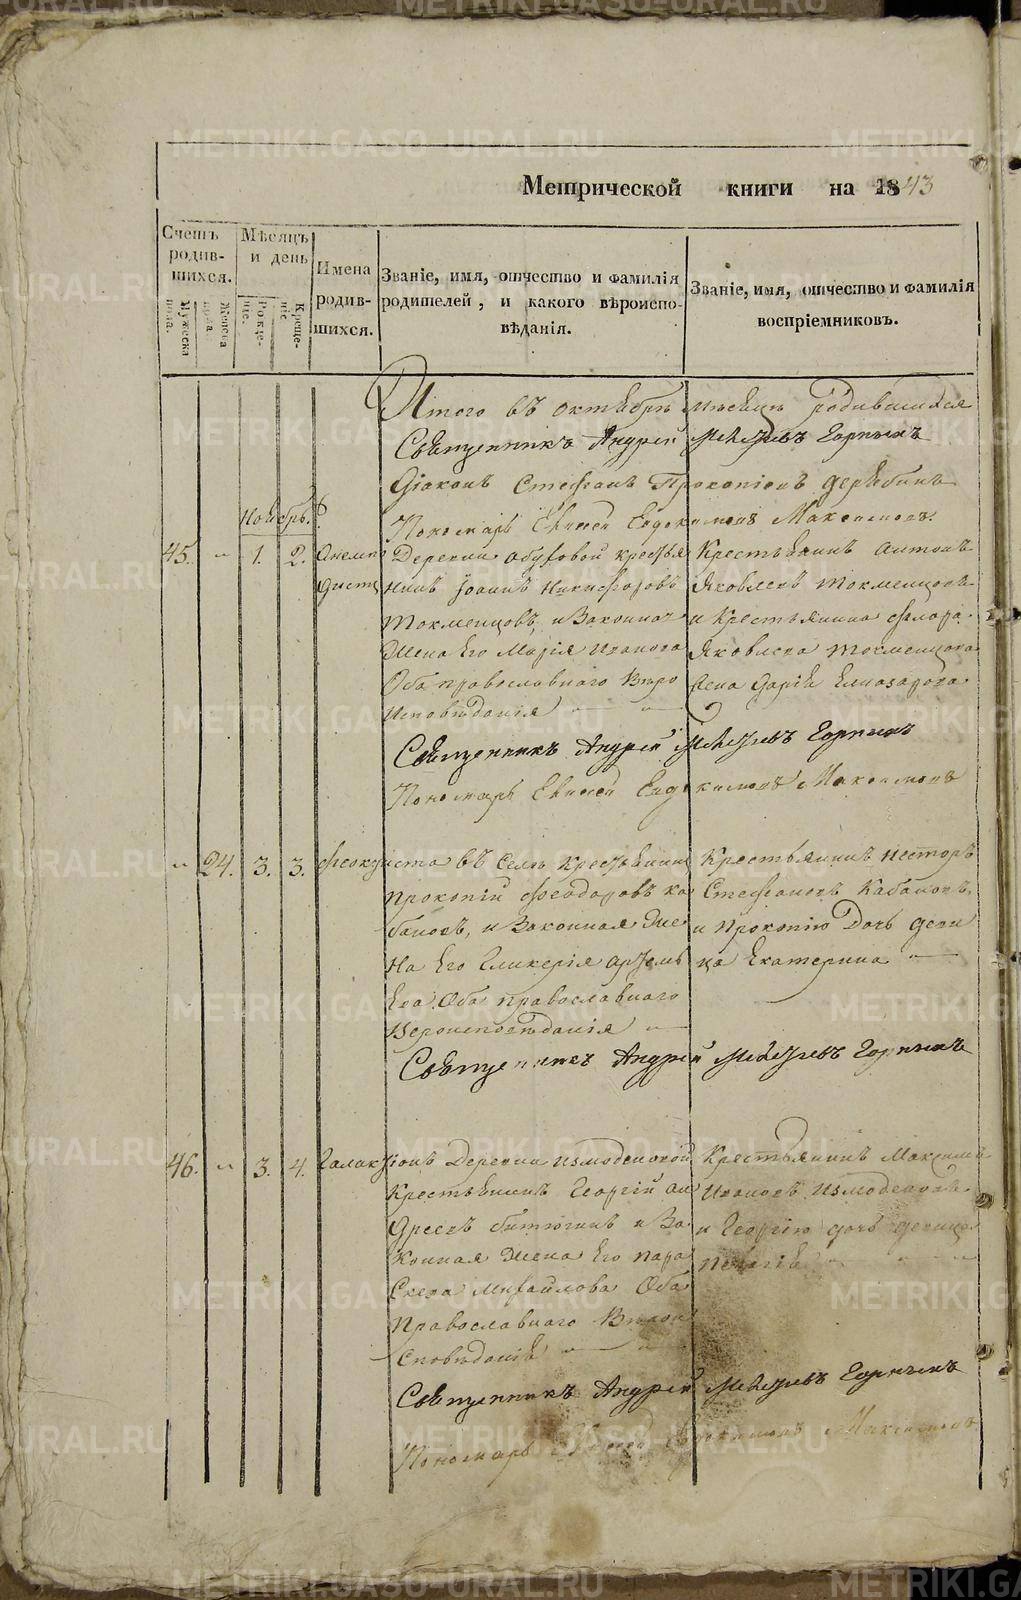 METRIKI.GASO-URAL.RU
Метрической книги на 1843
Счетъ родившихся.
Мужеска пола.
Женска пола.
Мѣсяцъ и день
Рожденіе.
Крещеніе
Имена родившихся.
Званіе, имя, отчество и фамилія
родителей, и какого вѣроиспо-
вѣданія.
Званіе, имя, отчество и фамилія
воспріемниковъ.
Итого въ октябрѣ мѣсяцѣ родившихся
Священникъ Андрей
Діаконъ Стефанъ Прокопіевъ
Пономарь Евдокимовъ Максимовъ.
Ноябрь.
45. „ 1. 2.
Деревни крестья
нинъ Іоаннъ Никифоровъ
Токменцовъ, и Законная
Жена Его Марія Иванова
Оба православнаго Вѣро
Исповѣданія
Крестьянинъ Антонъ
Яковлевъ Токменцовъ
и Крестьянина
Яковлева Токменцова
Жена Дарья Елиазарова
Священникъ Андрей
Пономарь Евдокимовъ Максимовъ
„ 24. 3. 3. Феоктиста въ Селѣ Крестьянинъ
Прокопій Феодоровъ Ка
бановъ, и Законная Же
на Его Гликерія Артемь
ева Оба православнаго
Вероисповѣданія
Крестьянинъ Несторъ
Стефановъ Кабановъ,
и Прокопію Дочь Деви
ца Екатерина
Священникъ Андрей
46. „ 3. 4. Галактіонъ Деревни Измоденовой
Крестьянинъ Георгій Ан
дреевъ Битюгинъ и За
конная Жена Его Пара
скева Михайлова Оба
Православнаго Вѣрои
сповѣданія
Крестьянинъ Максимъ
Ивановъ Измоденовъ
и Георгію дочь девица
Пелагія
Священникъ Андрей
Пономарь Евдокимовъ Максимовъ